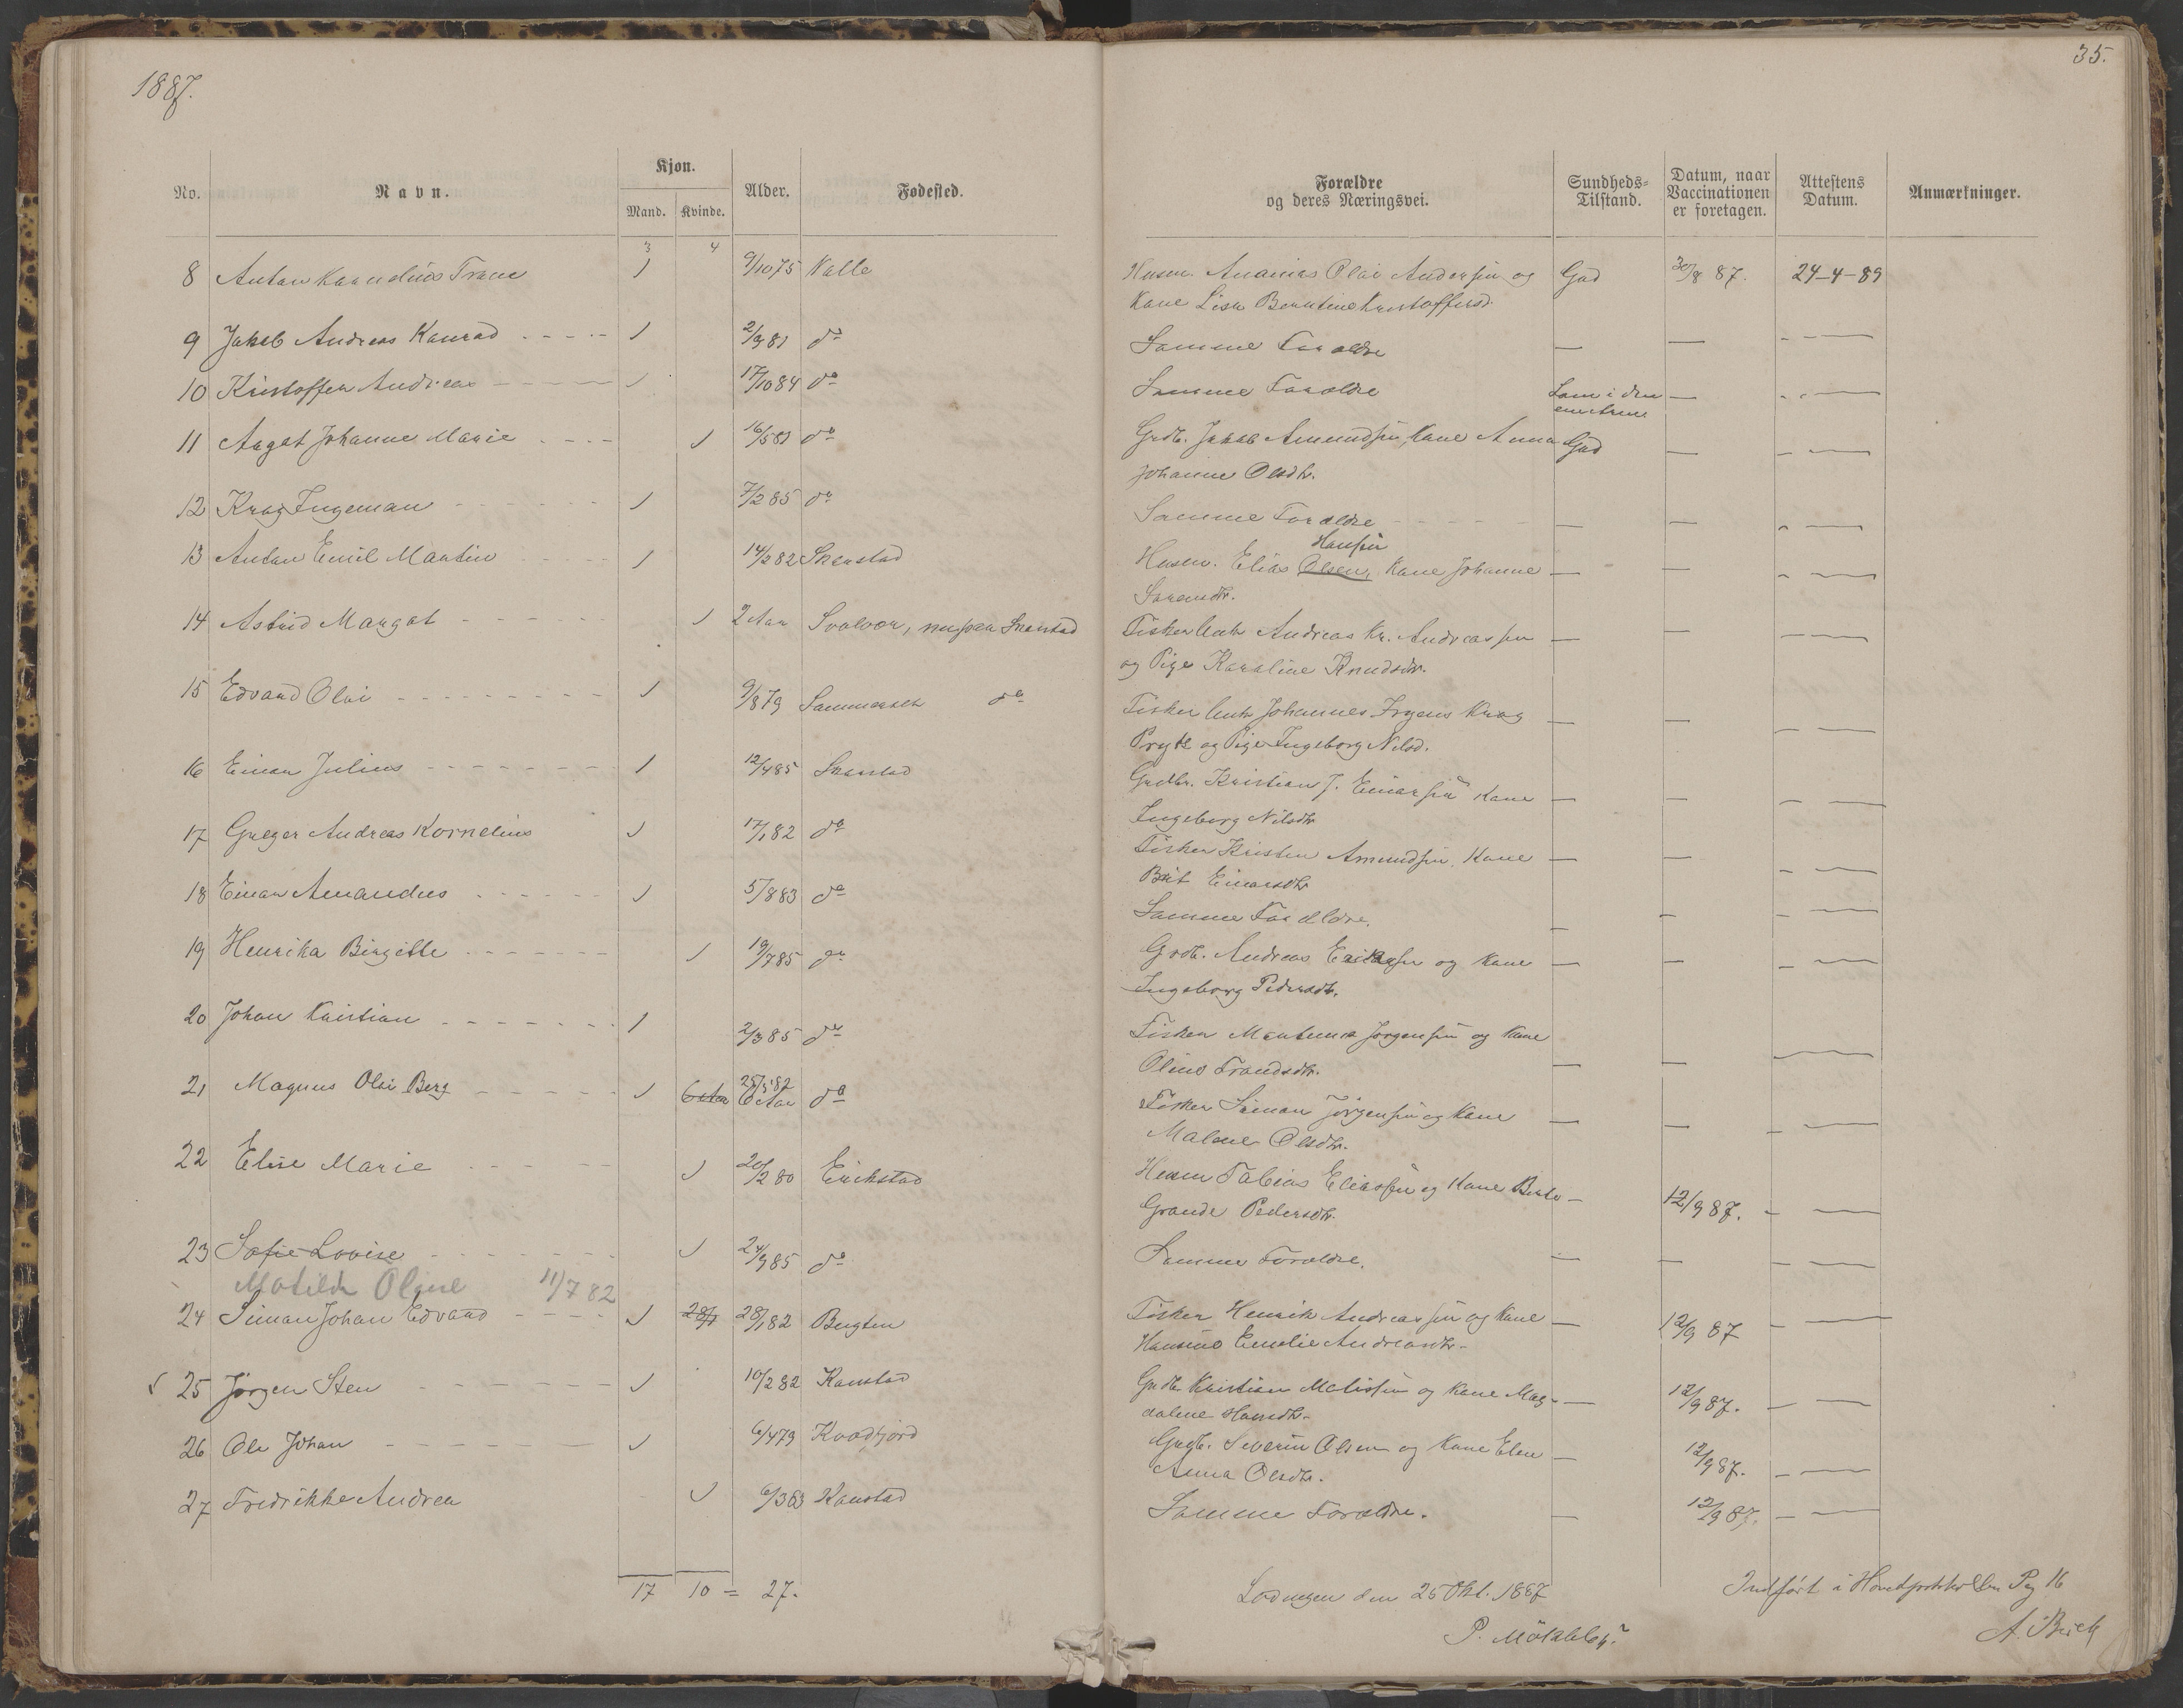 1887.
35.
No. Navn. Kjøn. Alder. Fødested. Forældre og deres Næringsvei. Sundheds-Tilstand. Datum, naar Vaccinationen er foretagen. Attestens Datum. Anmærkninger.
Mand. Kvinde.
3 4
8 Anton Kornelius Trane 1 9/10 75 Valle Husm. Ananias Olai Andersen og God 30/8 87. 24-4-89
Kone Lisa Berntine Kristoffersd.
9 Jakob Andreas Konrad 1 2/9 81 do Samme Forældre — — —
10 Kristoffer Andreas 1 17/10 84 do Samme Forældre Lam i den — —
ene Arme
11 Aagot Johanne Marie 1 16/5 81 do Grdb. Jakob Amundsen, Kone Anna God — —
Johanne Olsdtr.
12 Krag Ingeman 1 7/2 85 do Samme Forældre — — —
Hansen
13 Anton Emil Martin 1 14/2 82 Skarstad Husm. Elias Olsen, Kone Johanne — — —
Sørensdtr.
14 Astrid Margot 1 2 Aar Svolvær, nu paa Skarstad Fisker Enkm Andreas Kr. Andreassen — — —
og Pige Karoline Knudsdtr.
15 Edvard Olai 1 9/8 79 Sammesen do Fisker Johannes Krog — — —
og Pige Ingeborg Nilsd.
16 Einar Julius 1 12/4 85 Skarstad Grdbr. Kristian J. Einarsen Kone — — —
Ingeborg Nilsdtr
17 Greger Andreas Kornelius 1 17/1 82 do Fisker Kristen Amundsen, Kone — — —
Brit Einarsdtr
18 Einar Amandus 1 5/8 83 do Samme Forældre. — — —
19 Henrika Birgitte 1 19/7 85 do Grdb. Andreas Eriksen og Kone — — —
Ingeborg Pedersdtr.
20 Johan Kristian 1 2/3 85 do Fisker Martinus Jørgensen og Kone
Oline Trondsdtr. — — —
21 Magnus Olai Berg 1 6 Aar 25/5 82 6 Aar do Fisker Simon Jørgensen og Kone — — —
Malene Olsdtr.
22 Elise Marie 1 20/2 80 Erikstad Husm Tobias Eliassen og Kone Berte — 12/9 87. —
Grande Pedersdtr.
23 Sofie Lovise 1 24/9 85 do Samme Forældre. — — —
Matilde Oline 11/7 82
24 Simon Johan Edvard 1 28/1 28/1 82 Bugten Fisker Henrik Andreassen og Kone — 12/9 87 —
Hansine Emelie Andreasdtr.
25 Jørgen Sten 1 10/2 82 Kanstad Grdb. Kristian Matissen og Kone Mag- — 12/9 87. —
dalene Hansdtr.
26 Ole Johan 1 6/4 79 Kvædfjord Grdb. Severin Olsen og Kone Elen — 12/9 87. —
Anna Olsdtr.
27 Fredrikke Andrea 1 6/3 63 Kanstad Samme Forældre. — 12/9 87. —
17 10 = 27.
Lødingen den 25 Okt. 1887
Indført i Hovedprotokollen Pag 16
P.
A.